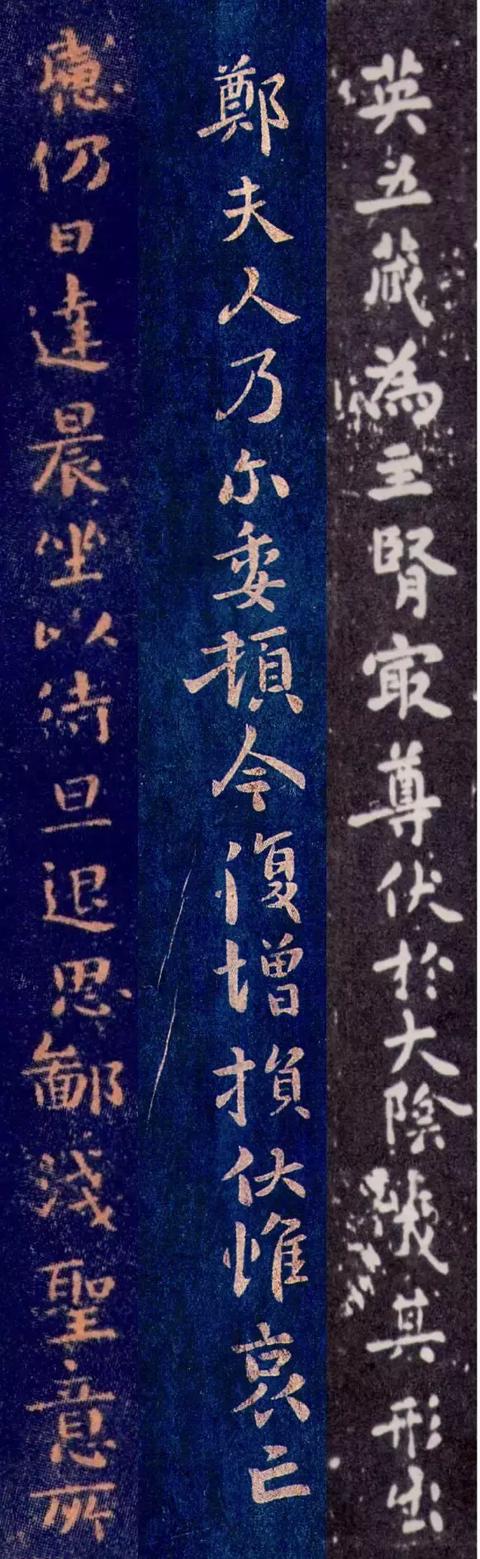 英五藏為主腎冣尊伏於大陰藏其形出
鄭夫人乃尒委頓今復增損伏惟哀亡
慮仍日達晨坐以待旦退思鄙淺聖意所